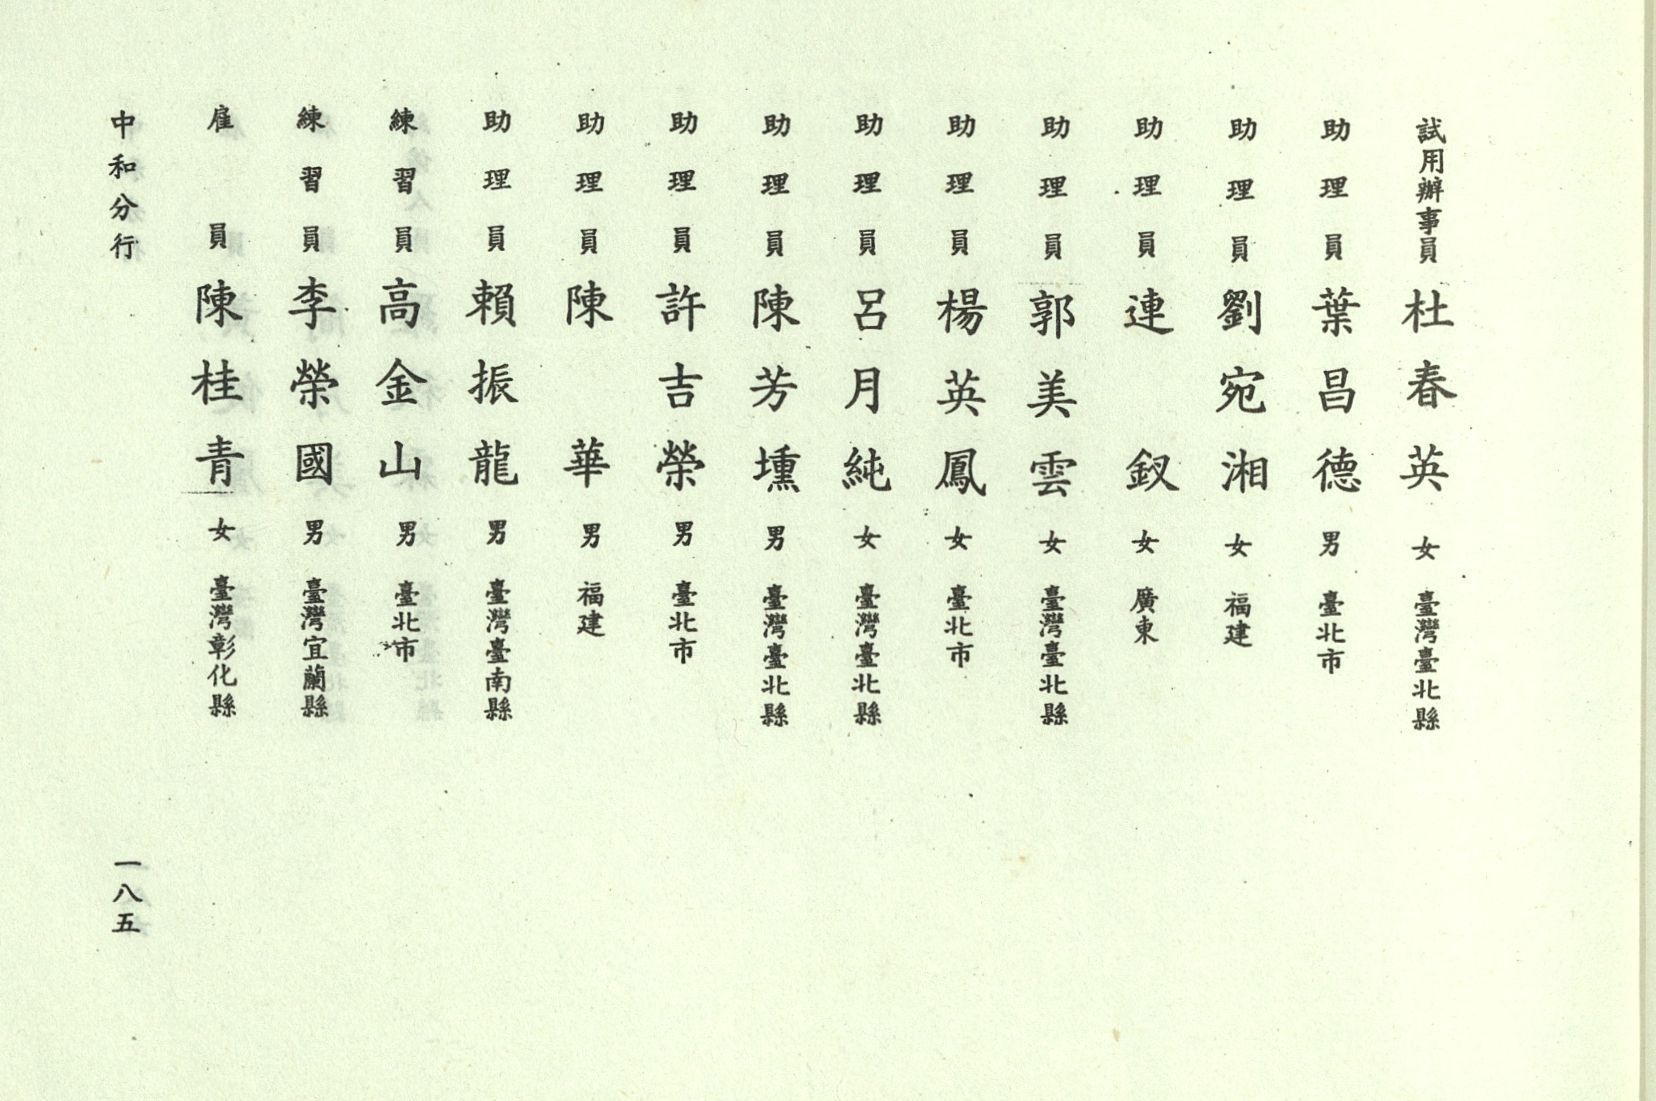 試用辦事員 杜春英 女 臺灣臺北縣
助理員 葉昌德 男 臺北市
助理員 劉宛湘 女 福建
助理員 連釵 女 廣東
助理員 郭美雲 女 臺灣臺北縣
助理員 楊英鳳 女 臺北市
助理員 呂月純 女 臺灣臺北縣
助理員 陳芳壎 男 臺灣臺北縣
助理員 許吉榮 男 臺北市
助理員 陳華 男 福建
助理員 賴振龍 男 臺灣臺南縣
練習員 高金山 男 臺北市
練習員 李榮國 男 臺灣宜蘭縣
雇員 陳桂青 女 臺灣彰化縣
中和分行 一八五